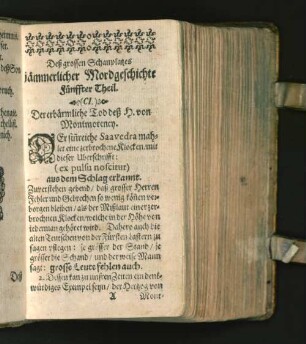 Deß grossen Schauplatzes
jämmerlicher Mordgeschichte
Fünffter Theil.
(CI.)
Der erbärmliche Tod deß H. von
Montmorency.
Der sinreiche Saavedra mah-
let eine zerbrochene Klocken / mit
dieser Uberschrifft:
(ex pulsu noscitur)
aus dem Schlag erkannt.
Zuverstehen gebend / daß grosser Herren
Fehler und Gebrechen so wenig können ver-
borgen bleiben / als der Mißlaut einer zer-
brochnen Klocken / welche in der Höhe von
iederman gehöret wird. Dahero auch die
alten Teutschen von der Fürsten Lastern zu
sagen pflegen: je grösser der Stand / je
grösser die Schand / und der weise Mann
sagt: grosse Leute fehlen auch.
2. Dessen kan zu unsren Zeiten ein denk-
würdiges Exempel seyn / der Hertzog von
A Mont-
Deß